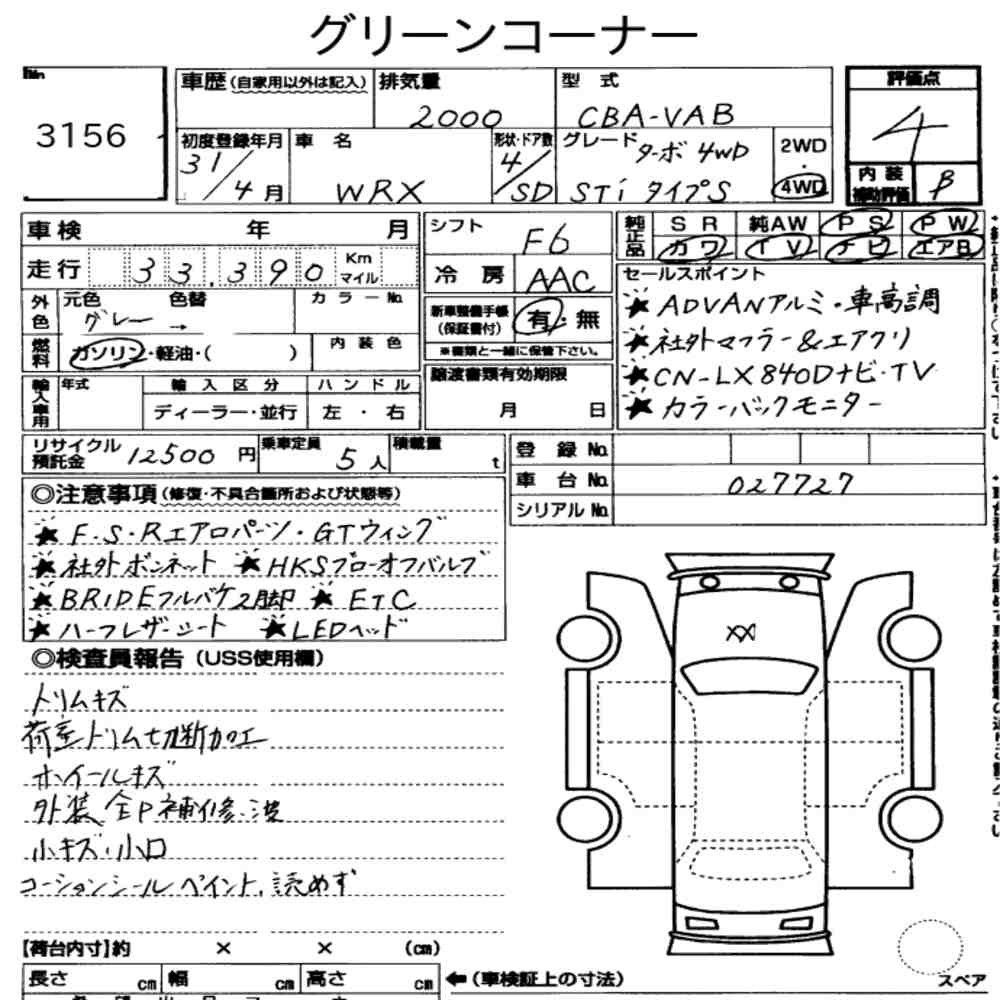 グリーンコーナー
No.
3156
車歴(自家用以外は記入)
排気量
2000
型 式
CBA-VAB
評価点
4
初度登録年月
31/4月
車 名
WRX
形状・ドア数
4/SD
グレード
ターボ 4WD
STi タイプS
2WD
・
4WD
内 装
補助評価
B
車検 年 月
シフト
F6
純正品
SR 純AW PS PW
カワ TV ナビ エアB
走行 33,390 Km マイル
冷 房
AAC
セールスポイント
★ADVANアルミ・車高調
★社外マフラー&エアクリ
★CN-LX840Dナビ・TV
★カラーバックモニター
外色
元色 色替
グレー →
カラーNo.
新車整備手帳
(保証書付)
有・無
※書類と一緒に保管下さい。
燃料
ガソリン・軽油・( )
内 装 色
輸入車用
年式
輸 入 区 分
ディーラー・並行
ハ ン ド ル
左 ・ 右
譲渡書類有効期限
月 日
リサイクル
預託金
12500円
乗車定員
5人
積載量
t
登 録 No.
車 台 No.
027727
シリアル No.
◎注意事項(修復・不具合箇所および状態等)
★F・S・Rエアロパーツ・GTウィング
★社外ボンネット ★HKSブローオフバルブ
★BRIDEフルバケ2脚 ★ETC
★ハーフレザーシート ★LEDヘッド
◎検査員報告(USS使用欄)
トリムキズ
荷室トリム切断加工
ホイールキズ
外装全P補修・波
小キズ・小凹
コーションシールペイント,読めず
XX
【荷台内寸】約 × × (cm)
長さ cm 幅 cm 高さ cm
←(車検証上の寸法)
スペア